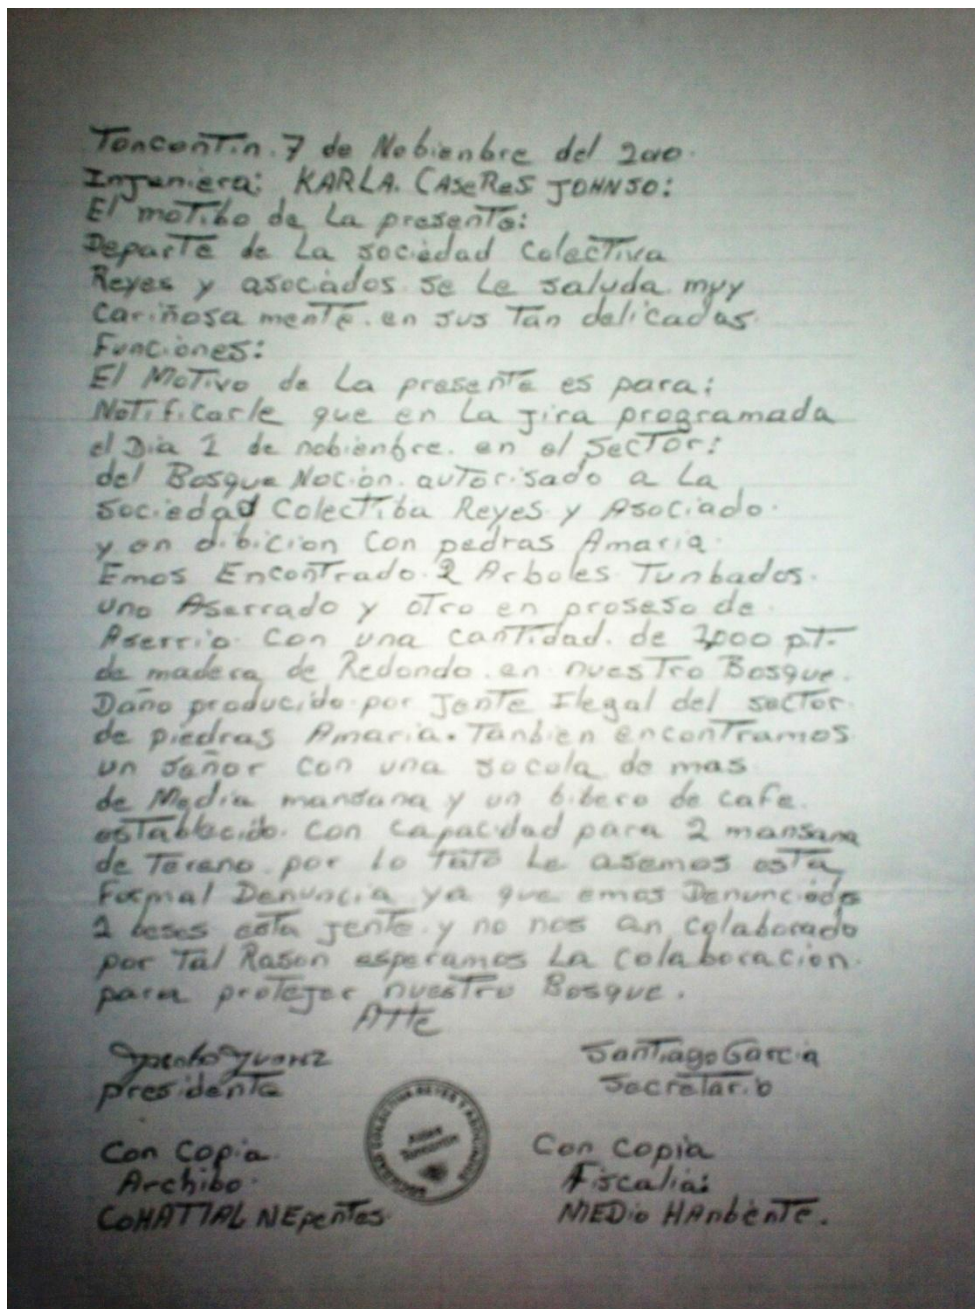 Toncontin. 7 de Nobienbre del 2010.
Injeniera: KARLA. CASeReS JOHNSO:
El motibo de La presente:
Departe de La sociedad Colectiva
Reyes y asociados se Le saluda muy
Cariñosa mente. en sus Tan delicadas.
Funciones:
El Motivo de La presente es para:
Notificarle que en La jira programada
el Dia 2 de nobienbre. en el sector:
del Bosque Nacion. autorisado a La
Sociedad Colectiba Reyes y Asociado.
y en dibicion Con pedras Amaria.
Emos Encontrado. 2 Arboles Tunbados.
uno Aserrado y otro en proseso de.
Aserrio. Con una cantidad. de 2,000 p.t.
de madera de Redondo. en nuestro Bosque.
Daño producido por jente Ilegal del sector.
de piedras Amaria. Tanbien encontramos
un señor con una socola de mas
de Media mansana y un bibero de cafe.
establecido. con capacidad para 2 mansana
de Tereno. por lo tato Le asemos esta
Formal Denuncia ya que emos Denunciado
2 beses esta jente. y no nos an colaborado
por Tal Rason esperamos La colaboracion.
para protejer nuestro Bosque.
Atte
Juarez Santiago Garcia
presidente Secretario
SOCIEDAD COLECTIVA REYES Y ASOCIADOS
Toncontin
Con Copia. Con Copia
Archibo. Fiscalia:
COHATTIAL NEpentes. MEDio HAnbiente.